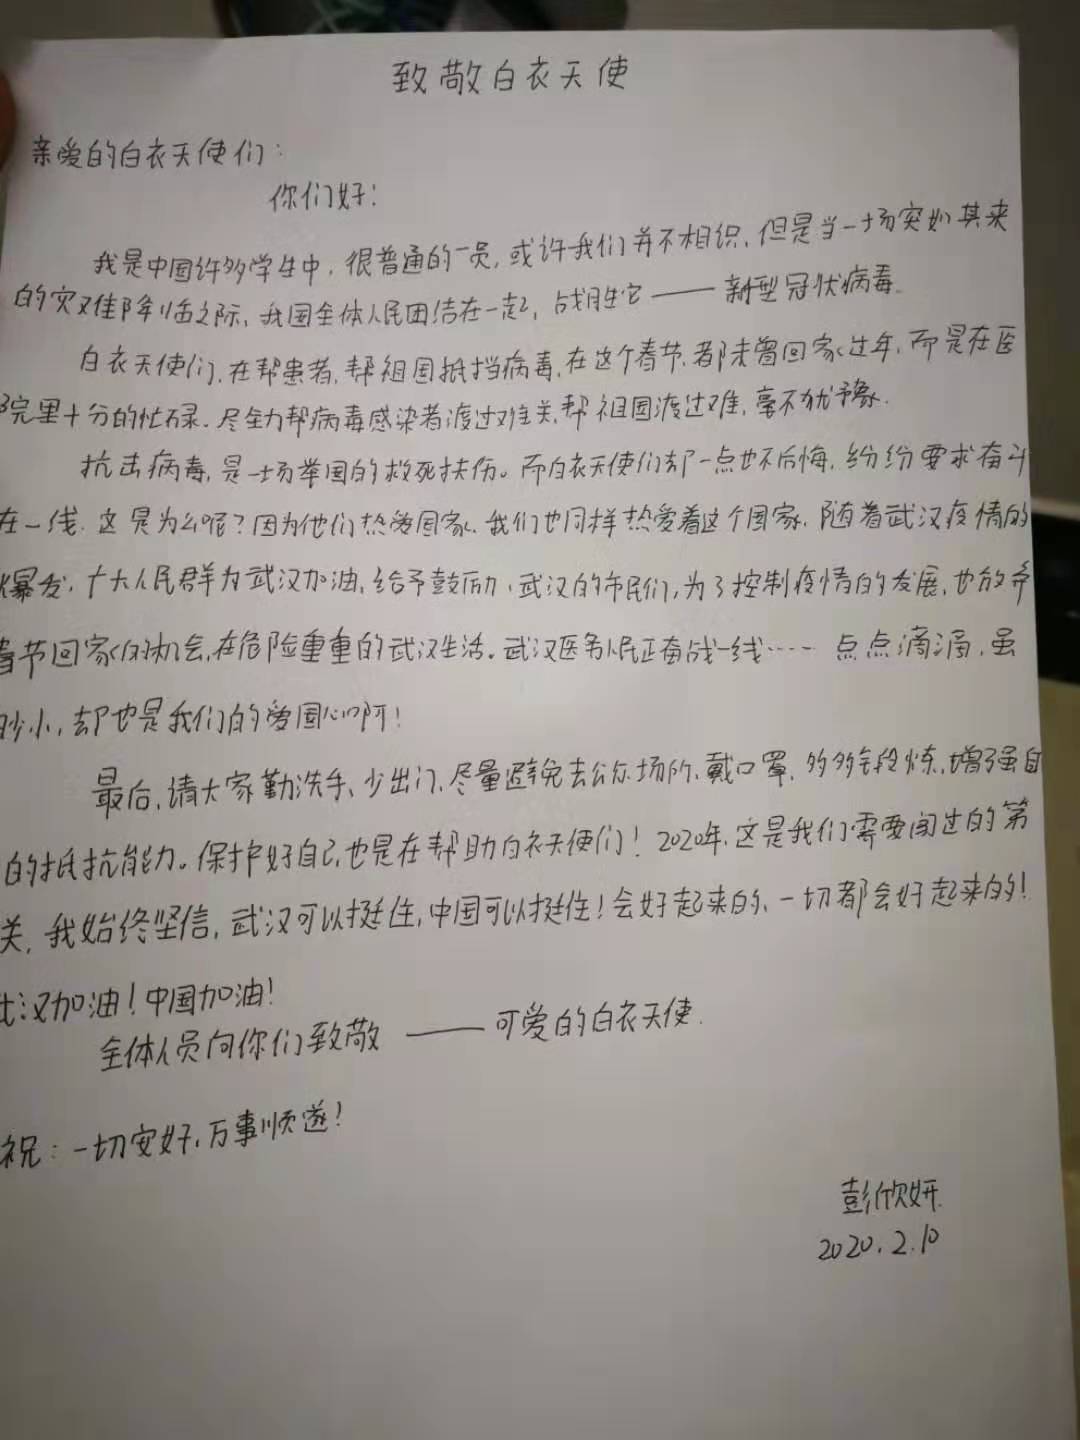 致敬白衣天使
亲爱的白衣天使们：
你们好！
我是中国许多学生中，很普通的一员，或许我们并不相识，但是当一场突如其来
的灾难降临之际，我国全体人民团结在一起，战胜它——新型冠状病毒。
白衣天使们，在帮患者，帮祖国抵挡病毒，在这个春节，都未曾回家过年，而是在医
院里十分的忙碌，尽全力帮病毒感染者渡过难关，帮祖国渡过难，毫不犹豫。
抗击病毒，是一场举国的救死扶伤。而白衣天使们却一点也不后悔，纷纷要求奋斗
在一线，这是为么呢？因为他们热爱国家，我们也同样热爱着这个国家，随着武汉疫情的
爆发，广大人民群为武汉加油，给予鼓励，武汉的市民们，为了控制疫情的发展，也放弃
春节回家的机会，在危险重重的武汉生活。武汉医务人民正奋战一线…… 点点滴滴，虽
渺小，却也是我们的爱国心啊！
最后，请大家勤洗手、少出门、尽量避免去公众场所、戴口罩，多多锻炼，增强自
的抵抗能力。保护好自己，也是在帮助白衣天使们！2020年，这是我们需要闯过的第
关，我始终坚信，武汉可以挺住，中国可以挺住！会好起来的、一切都会好起来的！
武汉加油！中国加油！
全体人员向你们致敬——可爱的白衣天使.
祝：一切安好，万事顺遂！
彭欣妍
2020.2.10